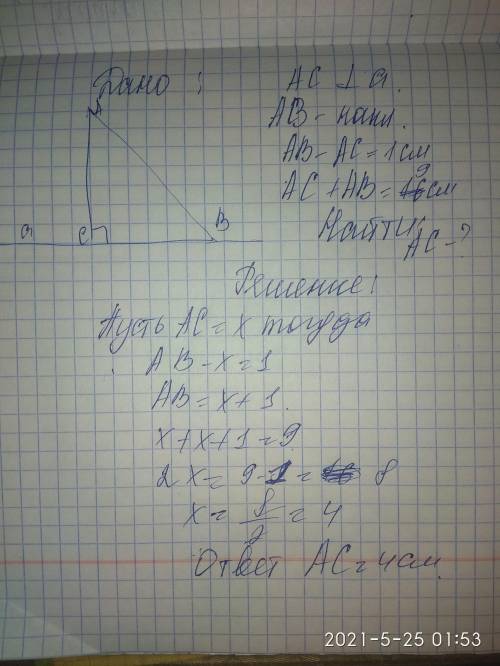 Дано : AC ⊥ a.
A
AB - накл.
AB - AC = 1 см
AC + AB = 9 см
a C B
Найти:
AC - ?
Решение:
Пусть AC = x тогуда
AB - x = 1
AB = x + 1.
x + x + 1 = 9
2x = 9 - 1 = 8
x = 8/2 = 4
Ответ AC = 4 см.
2021-5-25 01:53